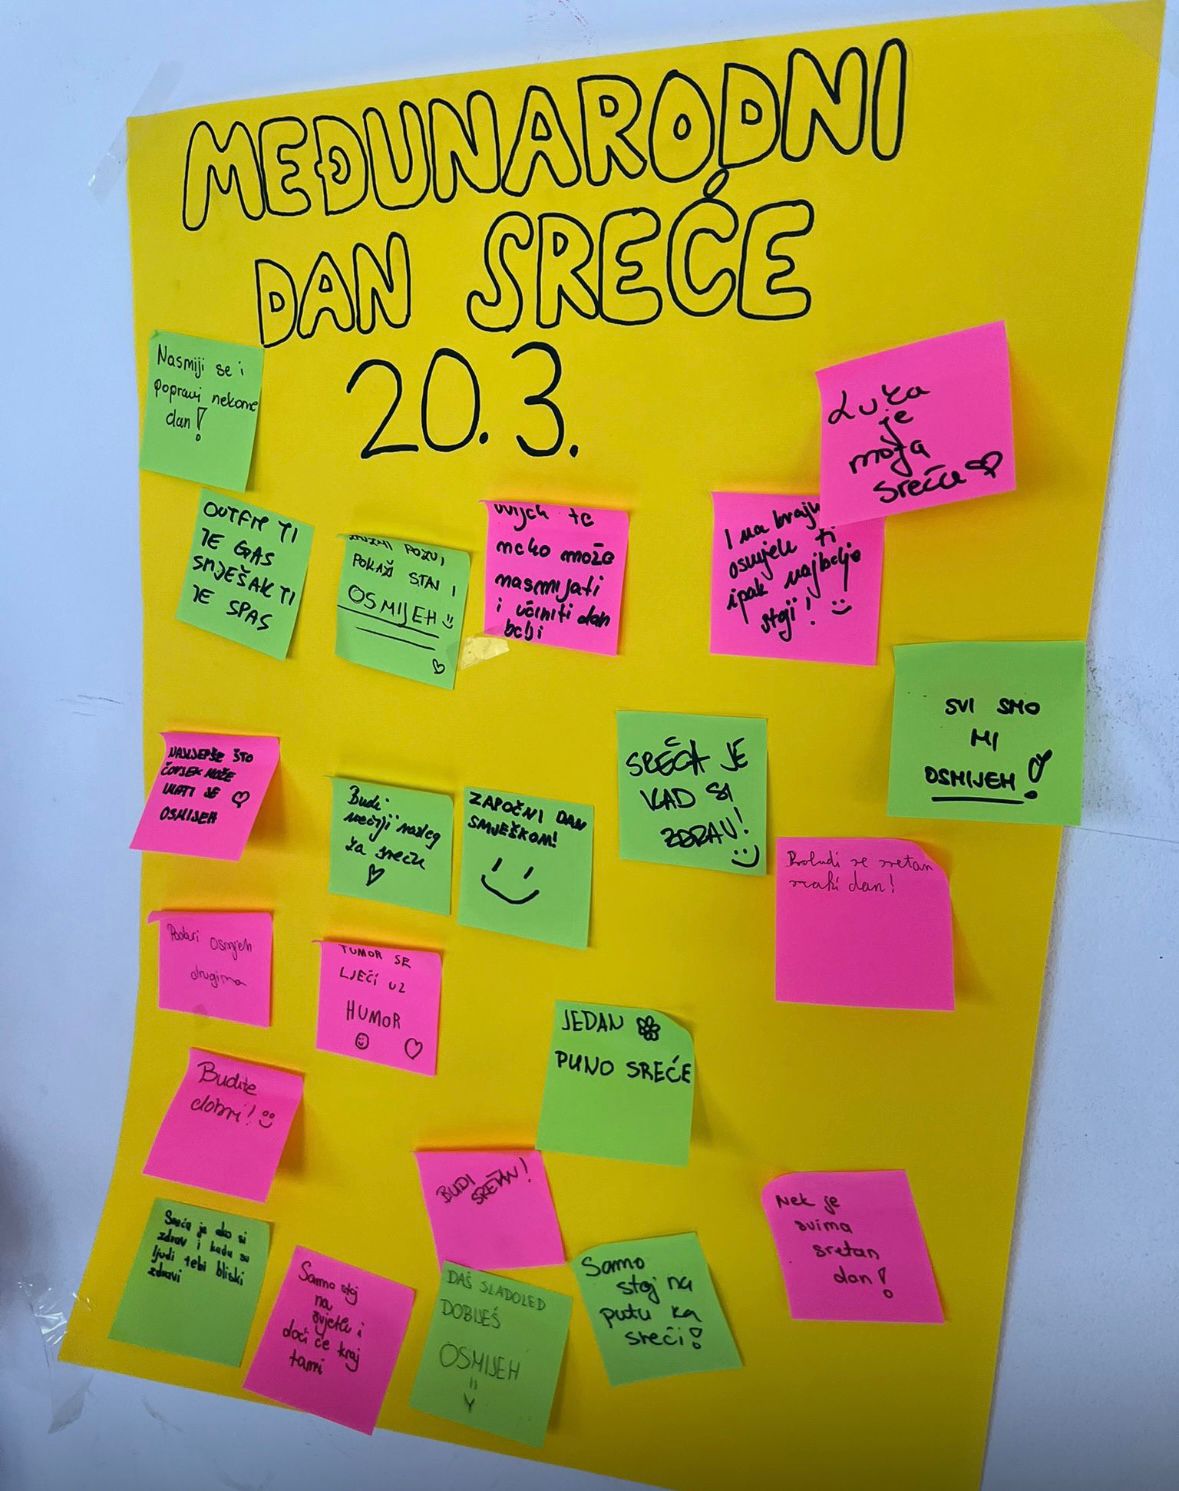 MEĐUNARODNI
DAN SREĆE
20.3.
Nasmiji se i
popravi nekome
dan!
Luka
je
moja
sreća
OUTFIT TI
JE GAS
SMJEŠAK TI
JE SPAS
POKAŽI STAV I
OSMIJEH
neko može
nasmijati
i učiniti dan
bolji
I na kraju
osmjeh ti
ipak najbolje
stoji!
SVI SMO
MI
OSMIJEH!
NAJLJEPŠE ŠTO
ČOVJEK MOŽE
IMATI JE
OSMIJEH
Budi
nečiji razlog
za sreću
ZAPOČNI DAN
SMJEŠKOM!
SREĆA JE
KAD SI
ZDRAV!
Probudi se sretan
svaki dan!
Pokloni osmjeh
drugima
TUMOR SE
LJEČI UZ
HUMOR
JEDAN
PUNO SREĆE
Budite
dobri!
BUDI
SRETAN!
Nek je
svima
sretan
dan!
Sreća je ako si
zdrav i kada su
ljudi tebi bliski
zdravi
Samo stoj
na
svjetlu i
doći će kraj
tami
DAŠ SLADOLED
DOBIJEŠ
OSMIJEH
Samo
stoj na
putu ka
sreći!